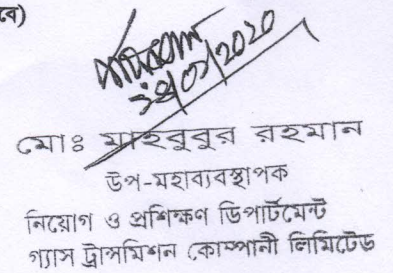 বে)
মোঃ মাহবুবুর রহমান
উপ-মহাব্যবস্থাপক
নিয়োগ ও প্রশিক্ষণ ডিপার্টমেন্ট
গ্যাস ট্রান্সমিশন কোম্পানী লিমিটেড